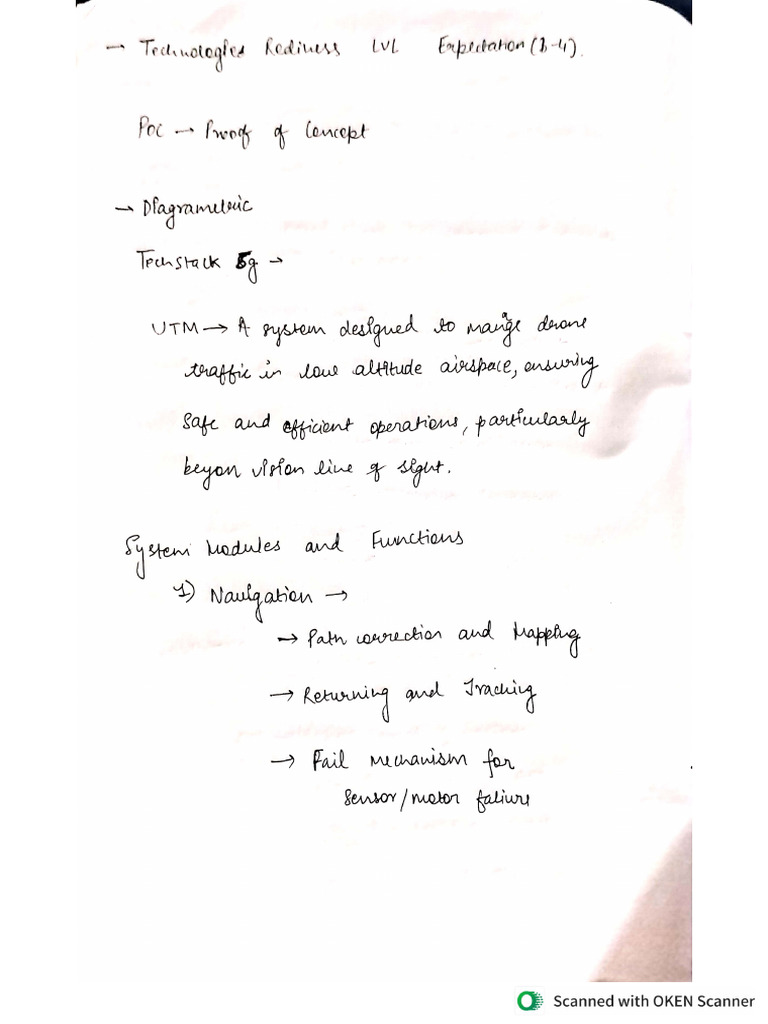 → Technologies Rediness LVL Expectation (3-4).
POC → Proof of Concept
→ Diagrametric
Techstack 5g →
UTM → A system designed to mange drone
traffic in low altitude airspace, ensuring
safe and efficient operations, particularly
beyon vision line of sight.
System Modules and Functions
1) Navigation →
→ Path correction and Mapping
→ Returning and Tracking
→ Fail mechanism for
sensor/motor faliure
Scanned with OKEN Scanner